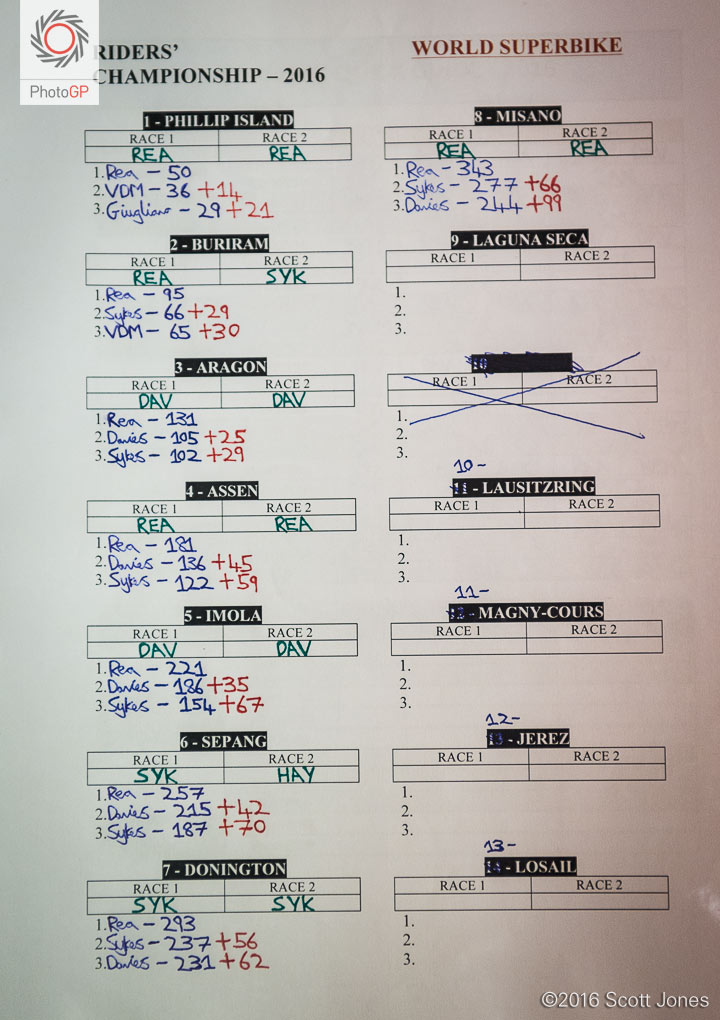 PhotoGP
RIDERS'
CHAMPIONSHIP – 2016
WORLD SUPERBIKE
1 - PHILLIP ISLAND
RACE 1 RACE 2
REA REA
1. Rea – 50
2. VDM – 36 +14
3. Giugliano – 29 +21
2 - BURIRAM
RACE 1 RACE 2
REA SYK
1. Rea – 95
2. Sykes – 66 +29
3. VDM – 65 +30
3 - ARAGON
RACE 1 RACE 2
DAV DAV
1. Rea – 131
2. Davies – 105 +25
3. Sykes – 102 +29
4 - ASSEN
RACE 1 RACE 2
REA REA
1. Rea – 181
2. Davies – 136 +45
3. Sykes – 122 +59
5 - IMOLA
RACE 1 RACE 2
DAV DAV
1. Rea – 221
2. Davies – 186 +35
3. Sykes – 154 +67
6 - SEPANG
RACE 1 RACE 2
SYK HAY
1. Rea – 257
2. Davies – 215 +42
3. Sykes – 187 +70
7 - DONINGTON
RACE 1 RACE 2
SYK SYK
1. Rea – 293
2. Sykes – 237 +56
3. Davies – 231 +62
8 - MISANO
RACE 1 RACE 2
REA REA
1. Rea – 343
2. Sykes – 277 +66
3. Davies – 244 +99
9 - LAGUNA SECA
RACE 1 RACE 2
1.
2.
3.
10
RACE 1 RACE 2
1.
2.
3.
10-
11 - LAUSITZRING
RACE 1 RACE 2
1.
2.
3.
11-
12 - MAGNY-COURS
RACE 1 RACE 2
1.
2.
3.
12-
13 - JEREZ
RACE 1 RACE 2
1.
2.
3.
13-
14 - LOSAIL
RACE 1 RACE 2
1.
2.
3.
©2016 Scott Jones